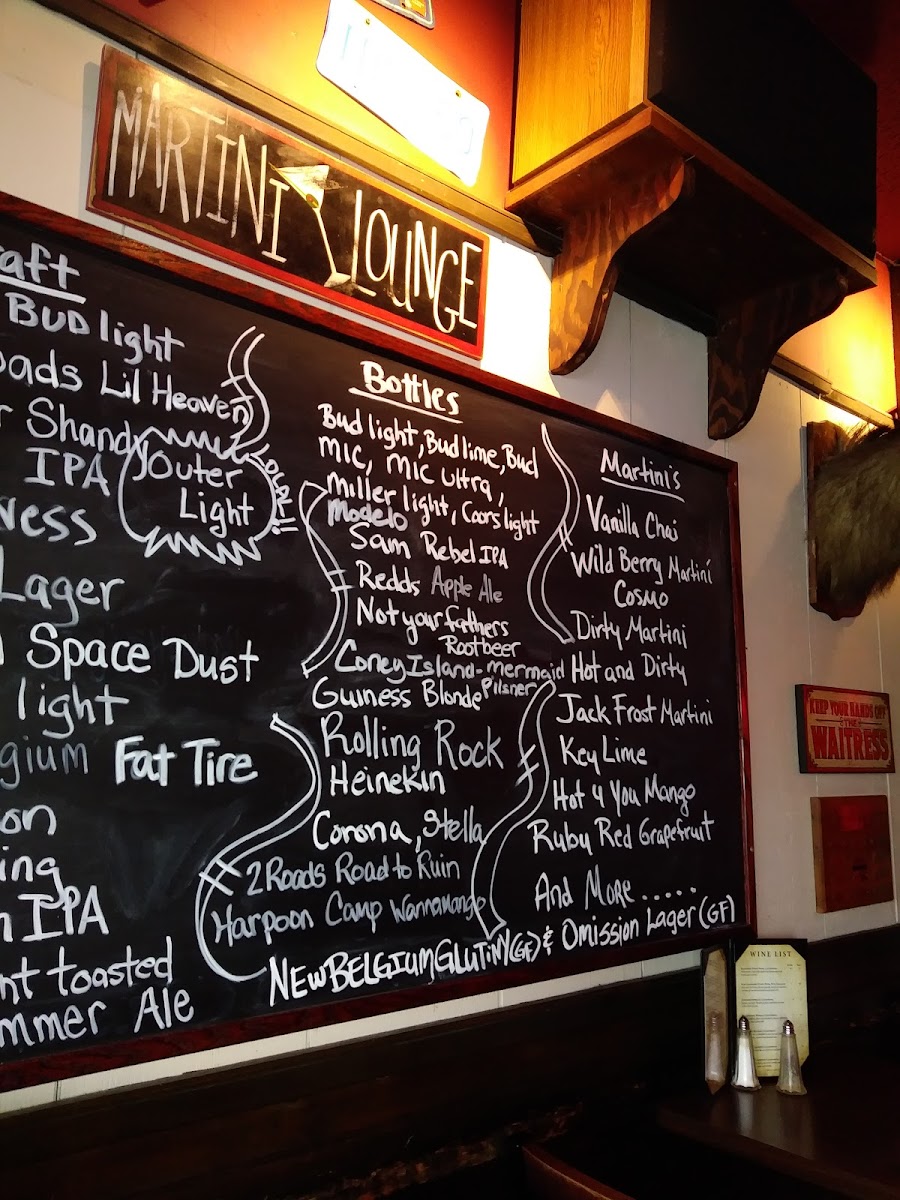 MARTINI LOUNGE
aft
BUD light
oads Lil Heaven
r Shandy
IPA
Outer
Light
LOCAL!!
ness
Lager
Space Dust
light
gium Fat Tire
on
ing
n IPA
nt toasted
mmer Ale
Bottles
Bud light, Bud lime, Bud
Mic, Mic Ultra,
Miller light, Coors light
Modelo
Sam Rebel IPA
Redds Apple Ale
Not your fathers
Rootbeer
Coney Island-mermaid
Pilsner
Guiness Blonde
Rolling Rock
Heinekin
Corona, Stella
2 Roads Road to Ruin
Harpoon Camp Wannamango
NEW BELGIUM GLUTINY (GF) & Omission Lager (GF)
Martini's
Vanilla Chai
Wild Berry Martini
Cosmo
Dirty Martini
Hot and Dirty
Jack Frost Martini
Key Lime
Hot 4 You Mango
Ruby Red Grapefruit
And More .....
KEEP YOUR HANDS OFF
THE
WAITRESS
WINE LIST